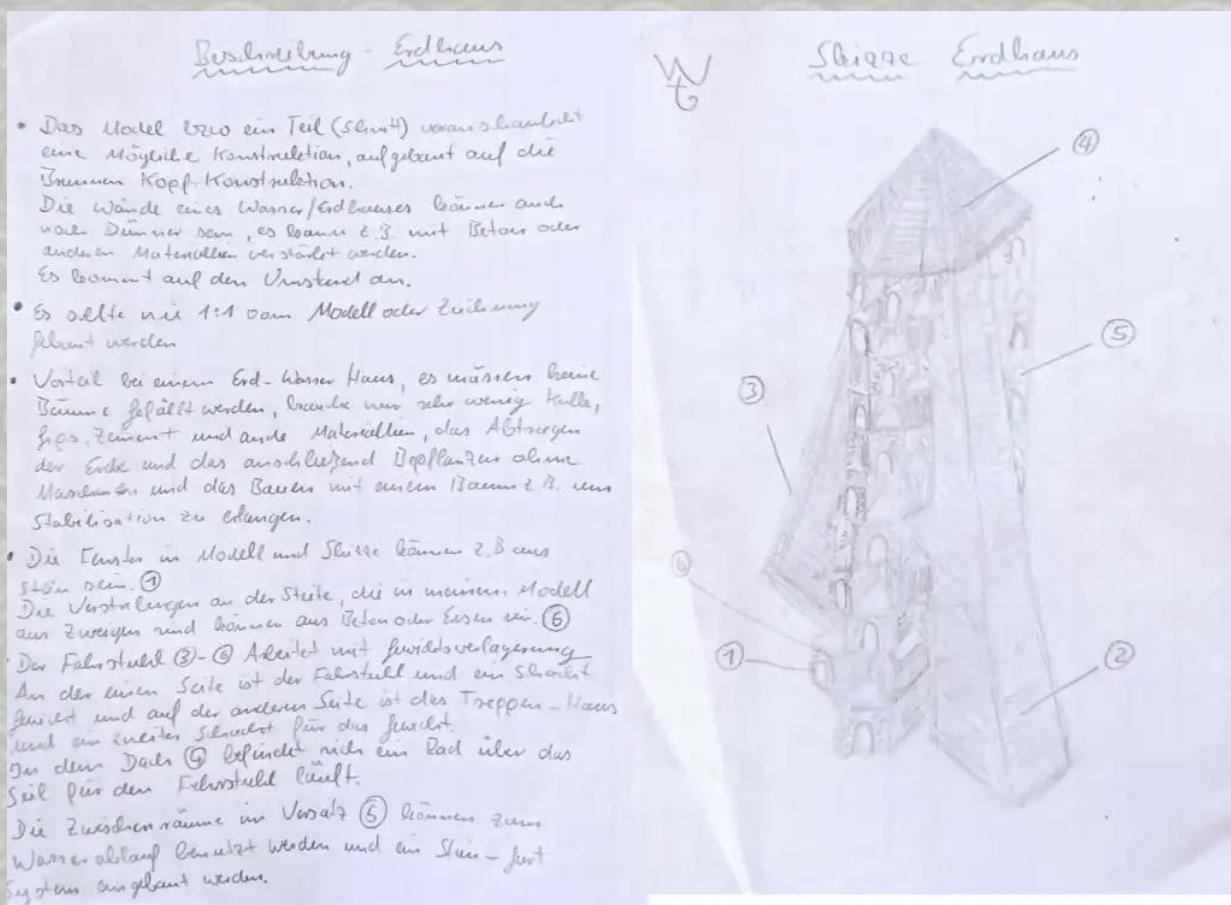 Beschreibung - Erdhaus
• Das Model bzw ein Teil (Schnitt) veranschaulicht
eine Mögliche Konstruktion, aufgebaut auf die
Brunnen Kopf Konstruktion.
Die Wände eines Wasser/Erdhauses können auch
noch Dünner sein, es kann z.B. mit Beton oder
anderen Materialien verstärkt werden.
Es kommt auf den Umstand an.
• Es sollte nie 1:1 vom Modell oder Zeichnung
gebaut werden
• Vorteil bei einem Erd-Wasser Haus, es müssen keine
Bäume gefällt werden, brauche nur sehr wenig Kalk,
Gips, Zement und ande Materialien, das Abtragen
der Erde und das anschließend Bepflanzen ohne
Maschinen und das Bauen mit einem Baum z.B. um
Stabilisation zu erlangen.
• Die Fenster in Modell und Skizze können z.B aus
Stein sein. ①
Die an der Stelle, die in meinem Modell
aus Zweigen sind können aus Beton oder Eisen sein. ⑥
Der Fahrstuhl ③-⑥ Arbeitet mit Gewichtsverlagerung
An der einen Seite ist der Fahrstuhl und ein Schacht
Gewicht und auf der anderen Seite ist das Treppen-Haus
und ein zweiter Schacht für das Gewicht.
In dem Dach ④ befindet sich ein Rad über das
Seil für den Fahrstuhl läuft.
Die Zwischenräume im Versatz ⑤ können zum
Wasserablauf benutzt werden und ein Stein-
System eingebaut werden.
Skizze Erdhaus
④
⑤
③
⑥
①
②